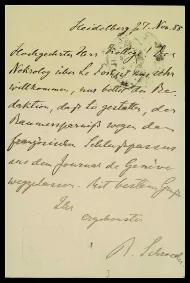 Heidelberg 27. Nov. 88
Hochgeehrter Herr College! Der
Nekrolog über Le Fort ist uns sehr
willkommen, nur bittet die Re-
daktion, daß Sie gestatten, der
Raumersparniß wegen den
französischen Schlußpassus
aus dem Journal de Genève
wegzulassen. Mit bestem Gruß
Ihr
ergebenster
R. Schroeder